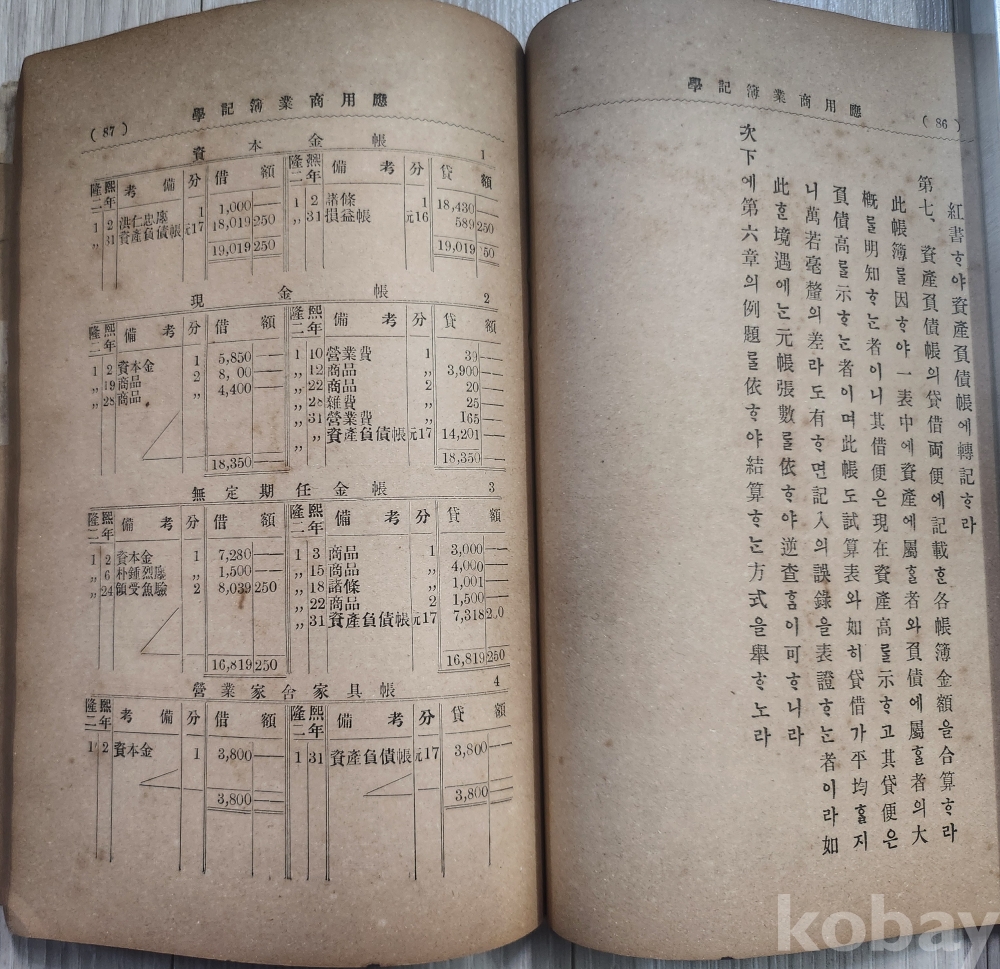 (86) 應用商業簿記學
紅書ᄒᆞ야資產負債帳에轉記ᄒᆞ라
第七、資產負債帳의貸借両便에記載ᄒᆞᆫ各帳簿金額을合算ᄒᆞ라
此帳簿를因ᄒᆞ야一表中에資產에屬ᄒᆞᆯ者와負債에屬ᄒᆞᆯ者의大
槪를明知ᄒᆞᄂᆞᆫ者이니其借便은現在資產高를示ᄒᆞ고其貸便은
負債高를示ᄒᆞᄂᆞᆫ者이며此帳도試算表와如히貸借가平均ᄒᆞᆯ지
니萬若毫釐의差라도有ᄒᆞ면記入의誤錄을表證ᄒᆞᄂᆞᆫ者이라如
此ᄒᆞᆫ境遇에ᄂᆞᆫ元帳張數를依ᄒᆞ야逆査ᄒᆞᆷ이可ᄒᆞ니라
次下에第六章의例題를依ᄒᆞ야結算ᄒᆞᄂᆞᆫ方式을擧ᄒᆞ노라
應用商業簿記學 (87)
資本金帳 1
隆熙二年 考備 分 借額 隆熙二年 備考 分 貸額
1 2 洪仁忠 1 1,000 — 1 2 諸條 1 18,430 —
〃 31 資產負債帳 元17 18,019 250 〃 31 損益帳 元16 589 250
19,019 250 19,019 250
現金帳 2
隆熙二年 備考 分 借額 隆熙二年 備考 分 貸額
1 2 資本金 1 5,850 — 1 10 營業費 1 39 —
〃 19 商品 2 8,100 — 〃 12 商品 〃 3,900 —
〃 28 商品 〃 4,400 — 〃 22 商品 2 20 —
〃 28 雜費 〃 25 —
〃 31 營業費 〃 165 —
〃 〃 資產負債帳 元17 14,201 —
18,350 — 18,350 —
無定期任金帳 3
隆熙二年 備考 分 借額 隆熙二年 備考 分 貸額
1 2 資本金 1 7,280 — 1 3 商品 1 3,000 —
〃 6 朴鍾烈 〃 1,500 — 〃 15 商品 〃 4,000 —
〃 24 領受魚驗 2 8,039 250 〃 18 諸條 〃 1,001 —
〃 22 商品 2 1,500 —
〃 31 資產負債帳 元17 7,318 250
16,819 250 16,819 250
營業家台家具帳 4
隆熙二年 考備 分 借額 隆熙二年 備考 分 貸額
1 2 資本金 1 3,800 — 1 31 資產負債帳 元17 3,800 —
3,800 — 3,800 —
kobay